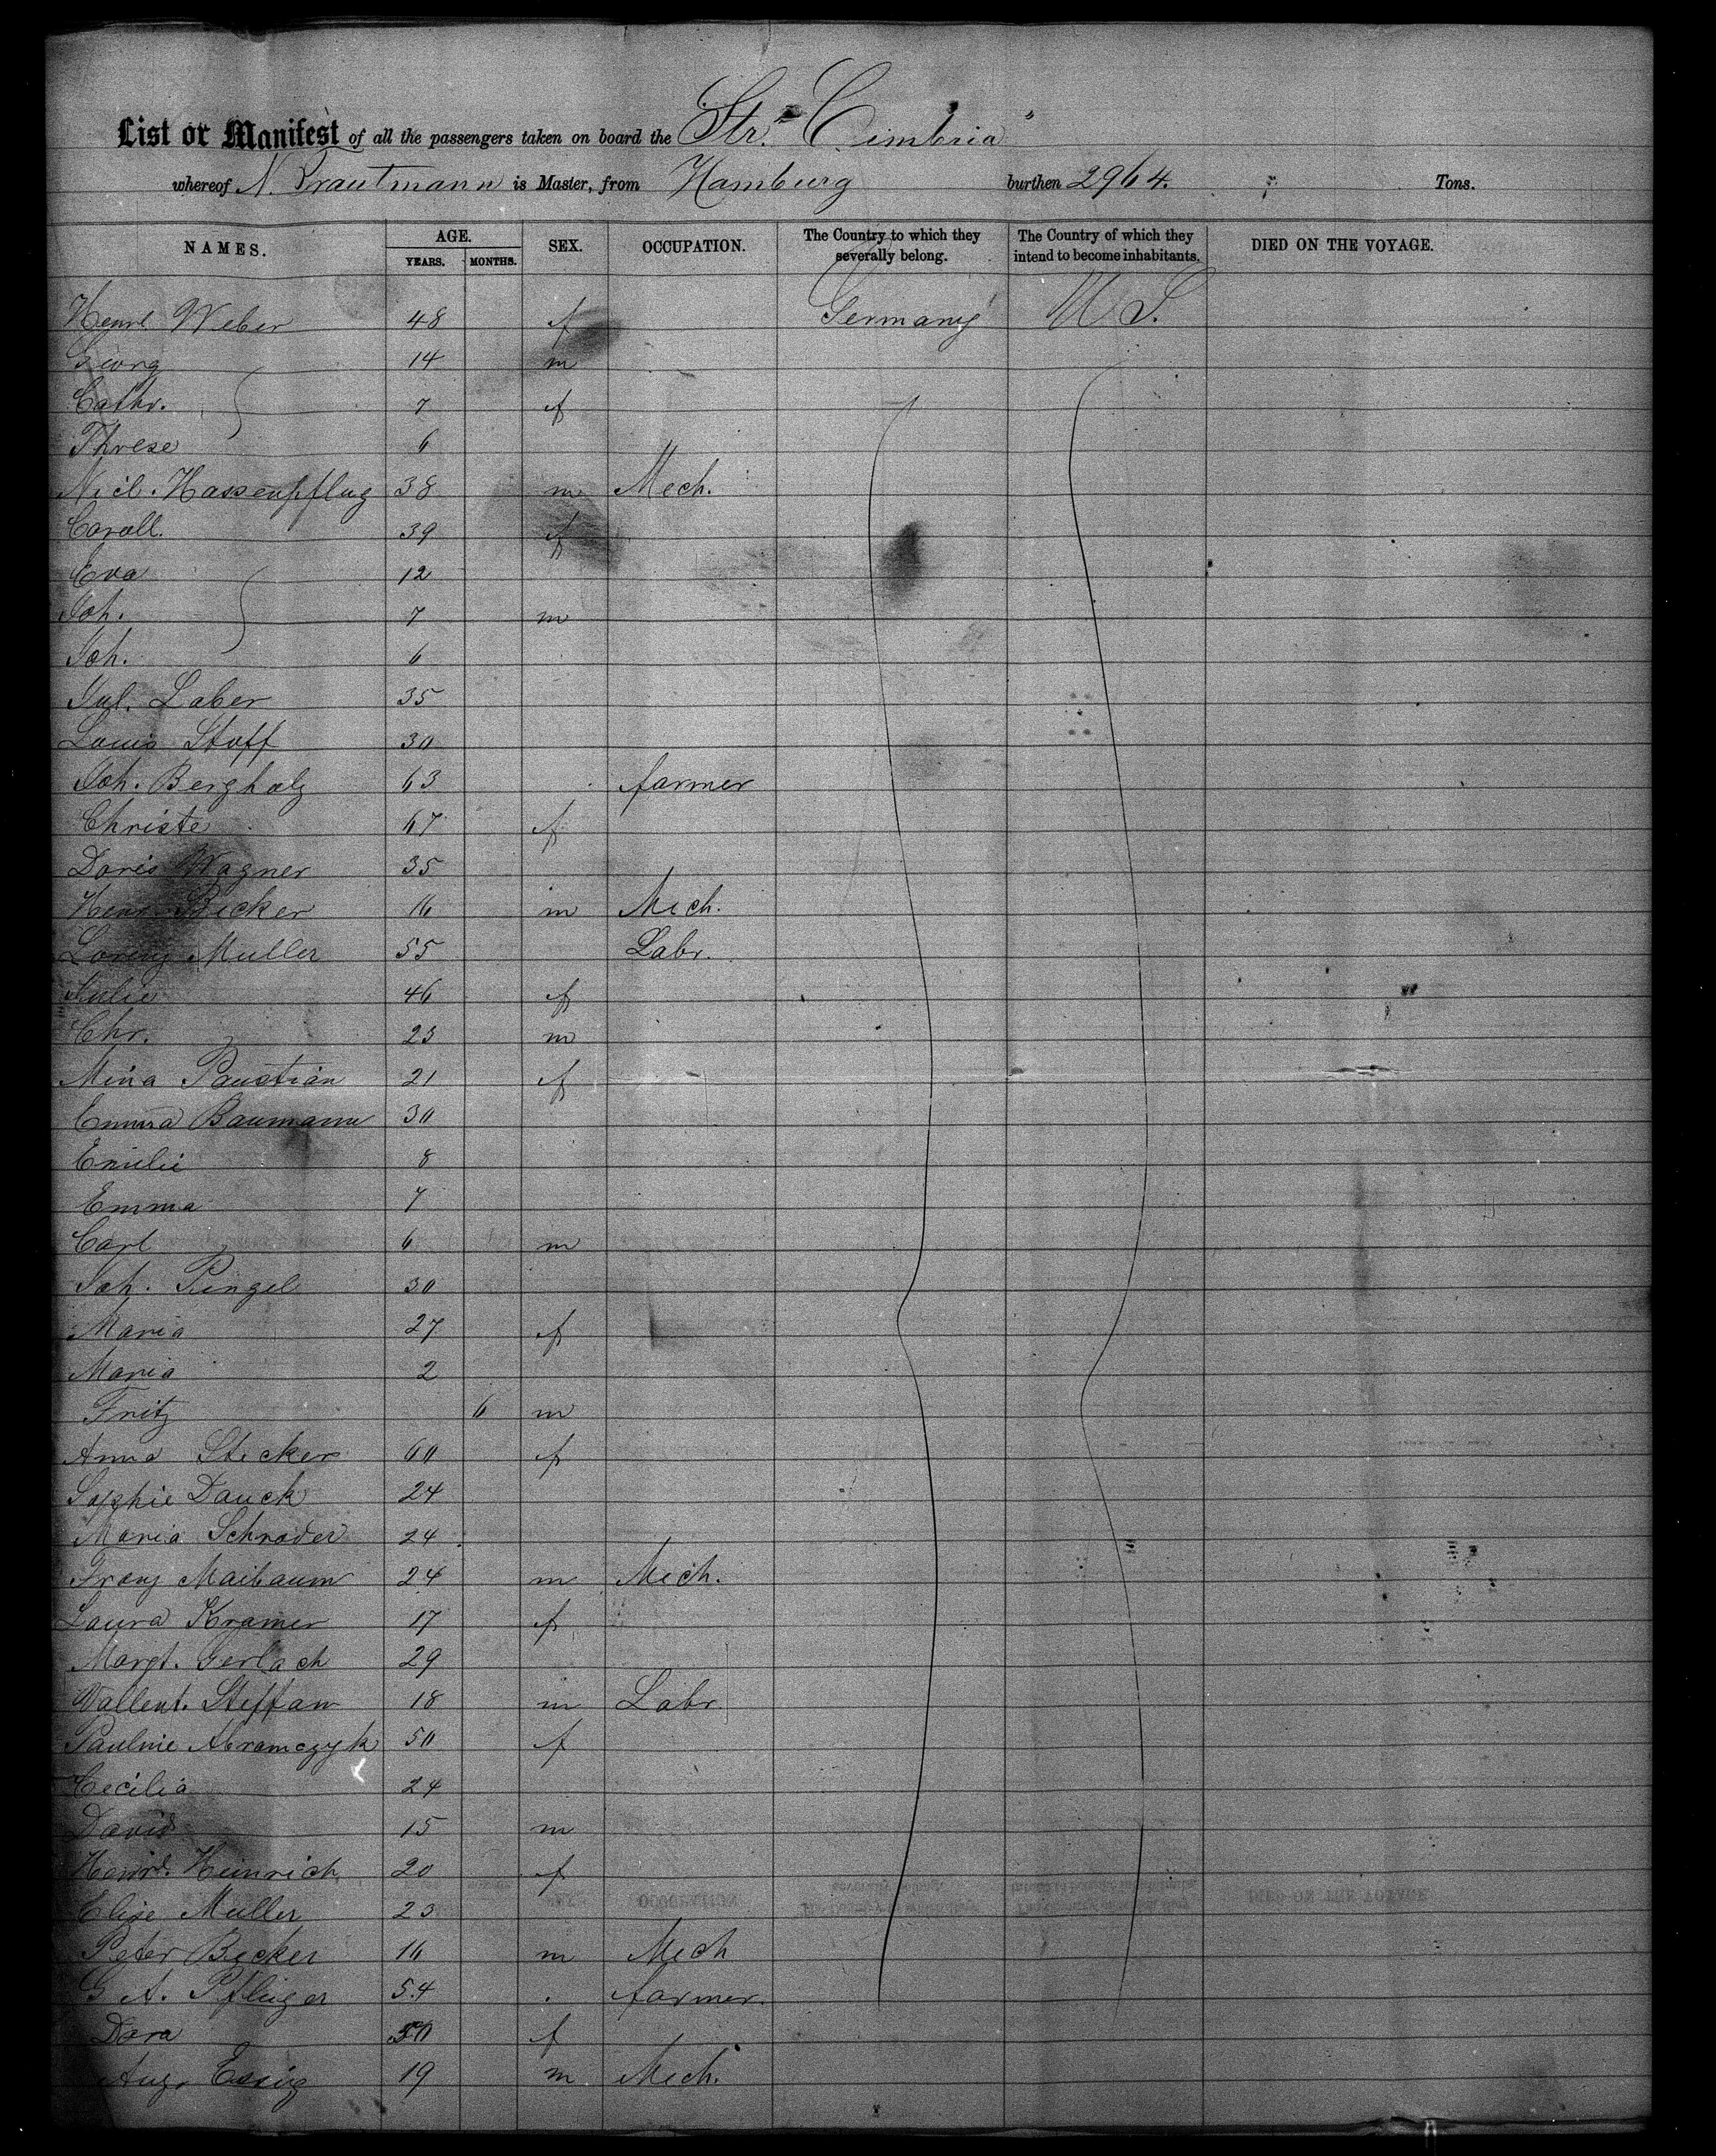 List or Manifest of all the passengers taken on board the Str. "Cimbria"
whereof N. Trautmann is Master, from Hamburg burthen 2964. Tons.
NAMES. AGE. YEARS. MONTHS. SEX. OCCUPATION. The Country to which they severally belong. The Country of which they intend to become inhabitants. DIED ON THE VOYAGE.
Weber 48 f Germany U S.
Georg 14 m
Cathr. 7 f
Threse 6
Nicl. Hassenpflug 38 m Mech.
Caroll. 39 f
Eva 12
Joh. 7 m
Joh. 6
Jul. Laber 35
Louis Stoff 30
Joh. Bergholz 63 farmer
Christe 67 f
Doris Wagner 35
Henr. Becker 16 m Mech.
Lorenz Muller 55 Labr.
Julie 46 f
Chr. 23 m
Mina Paustian 21 f
Emma Baumann 30
Emilie 8
Emma 7
Carl 6 m
Joh. Pingel 30
Maria 27 f
Maria 2
Fritz 6 m
Anna Steckers 60 f
Sophie Dauck 24
Maria Schrader 24
Franz Maibaum 24 m Mech.
Laura Kramer 17 f
Margt. Gerlach 29
Wallent. Steffan 18 m Labr.
Pauline Abramczyk 50 f
Cecilia 24
David 15 m
Heinrich 20 f
Elise Muller 23
Peter Becker 16 m Mech
G A. Pfluger 54 farmer.
Dora 50 f
Aug. Essig 19 m Mech.